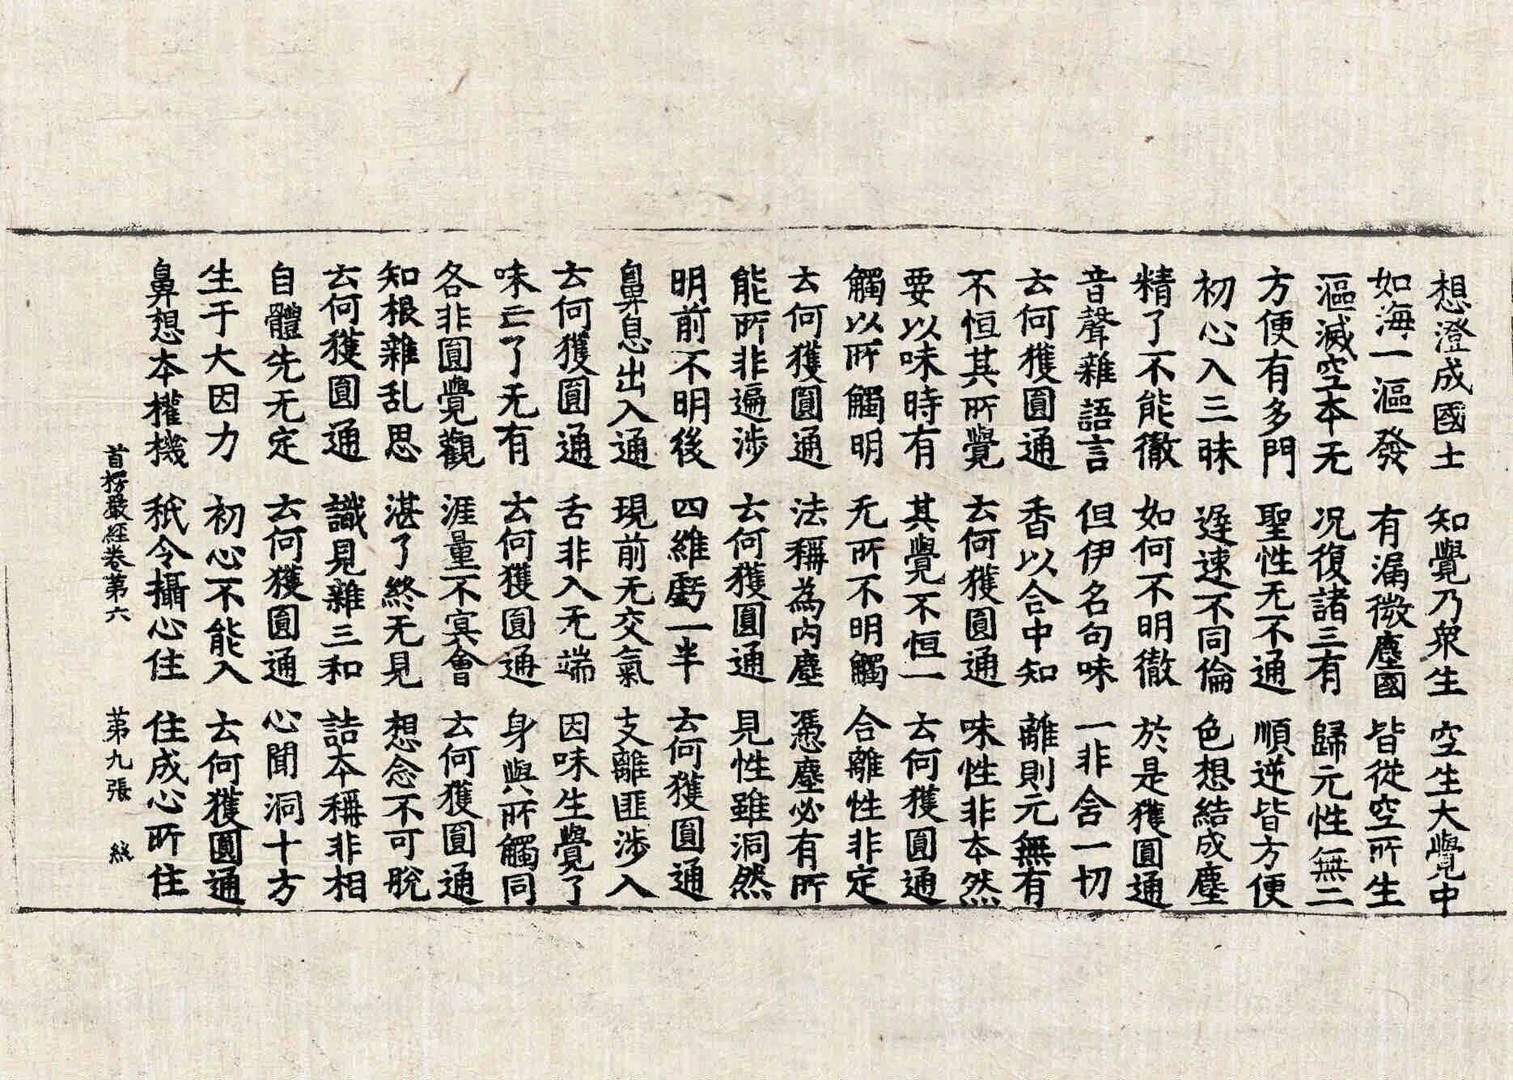 想澄成國土 知覺乃衆生 空生大覺中
如海一漚發 有漏微塵國 皆從空所生
漚滅空本无 况復諸三有 歸元性無二
方便有多門 聖性无不通 順逆皆方便
初心入三昧 遲速不同倫 色想結成塵
精了不能徹 如何不明徹 於是獲圓通
音聲雜語言 但伊名句味 一非含一切
云何獲圓通 香以合中知 離則元無有
不恒其所覺 云何獲圓通 味性非本然
要以味時有 其覺不恒一 云何獲圓通
觸以所觸明 无所不明觸 合離性非定
云何獲圓通 法稱為内塵 憑塵必有所
能所非遍涉 云何獲圓通 見性雖洞然
明前不明後 四維虧一半 云何獲圓通
鼻息出入通 現前无交氣 支離匪涉入
云何獲圓通 舌非入无端 因味生覺了
味亡了无有 云何獲圓通 身與所觸同
各非圓覺觀 涯量不冥會 云何獲圓通
知根雜乱思 湛了終无見 想念不可脫
云何獲圓通 識見雜三和 詰本稱非相
自體先无定 云何獲圓通 心聞洞十方
生于大因力 初心不能入 云何獲圓通
鼻想本權機 秖令攝心住 住成心所住
首楞嚴經卷第六 第九張